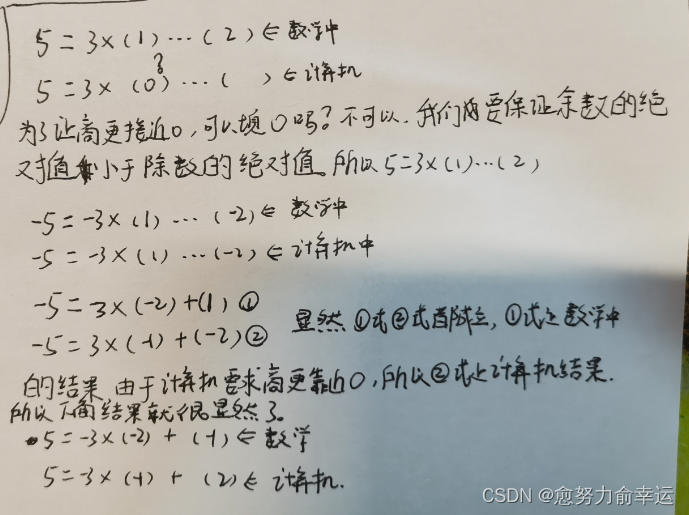 5=3×(1)…(2)∈数学中
?
5=3×(0)…( )∈计算机
为了让商更接近0,可以填0吗?不可以.我们要保证余数的绝
对值小于除数的绝对值 所以5=3×(1)…(2)
-5=-3×(1)…(-2)∈数学中
-5=-3×(1)…(-2)∈计算机中
-5=3×(-2)+(1)①
-5=3×(-1)+(-2)② 显然①式②式都成立,①式是数学中
的结果.由于计算机要求商更靠近0,所以②式是计算机结果.
所以下面结果就很显然了。
5=-3×(-2)+(-1)∈数学
5=-3×(-1)+(2)∈计算机.
CSDN @愈努力俞幸运